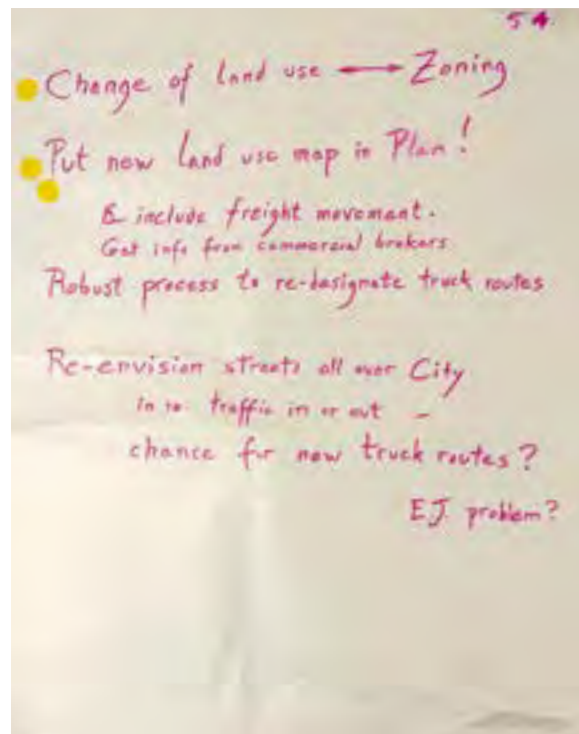 54.
Change of land use ⟷ Zoning
Put new land use map in Plan!
& include freight movement.
Get info from commercial brokers
Robust process to re-designate truck routes
Re-envision streets all over City
in re. traffic in or out –
chance for new truck routes?
E.J. problem?